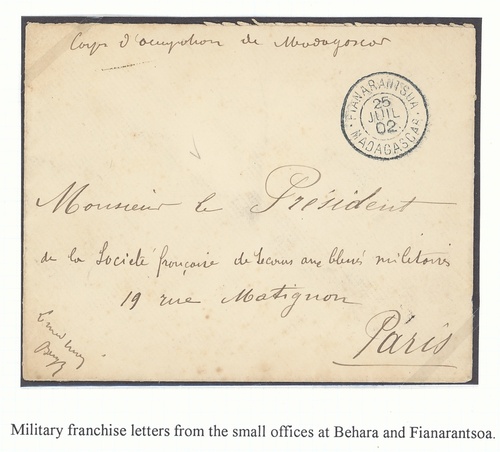 Corps d'occupation de Madagascar
FIANARANTSOA
25
JUIL
02
MADAGASCAR
Monsieur le Président
de la Société française de Secours aux blessés militaires
19 rue Matignon
Paris
Military franchise letters from the small offices at Behara and Fianarantsoa.